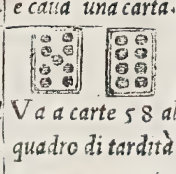 e caua una carta.
Va a carte 58 al
quadro di tardità